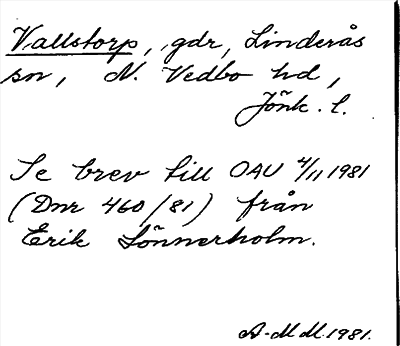 Vallstorp, gdr, Linderås
sn, N. Vedbo hd,
Jönk. l.
Se brev till OAU 4/11 1981
(Dnr 460/81) från
Erik Lönnerholm.
A-M M. 1981.